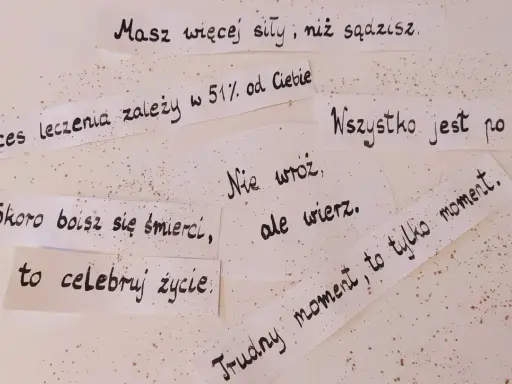 Masz więcej siły, niż sądzisz.
ces leczenia zależy w 51% od Ciebie
Wszystko jest po
Nie wróż,
ale wierz.
Skoro boisz się śmierci,
to celebruj życie.
Trudny moment, to tylko moment.